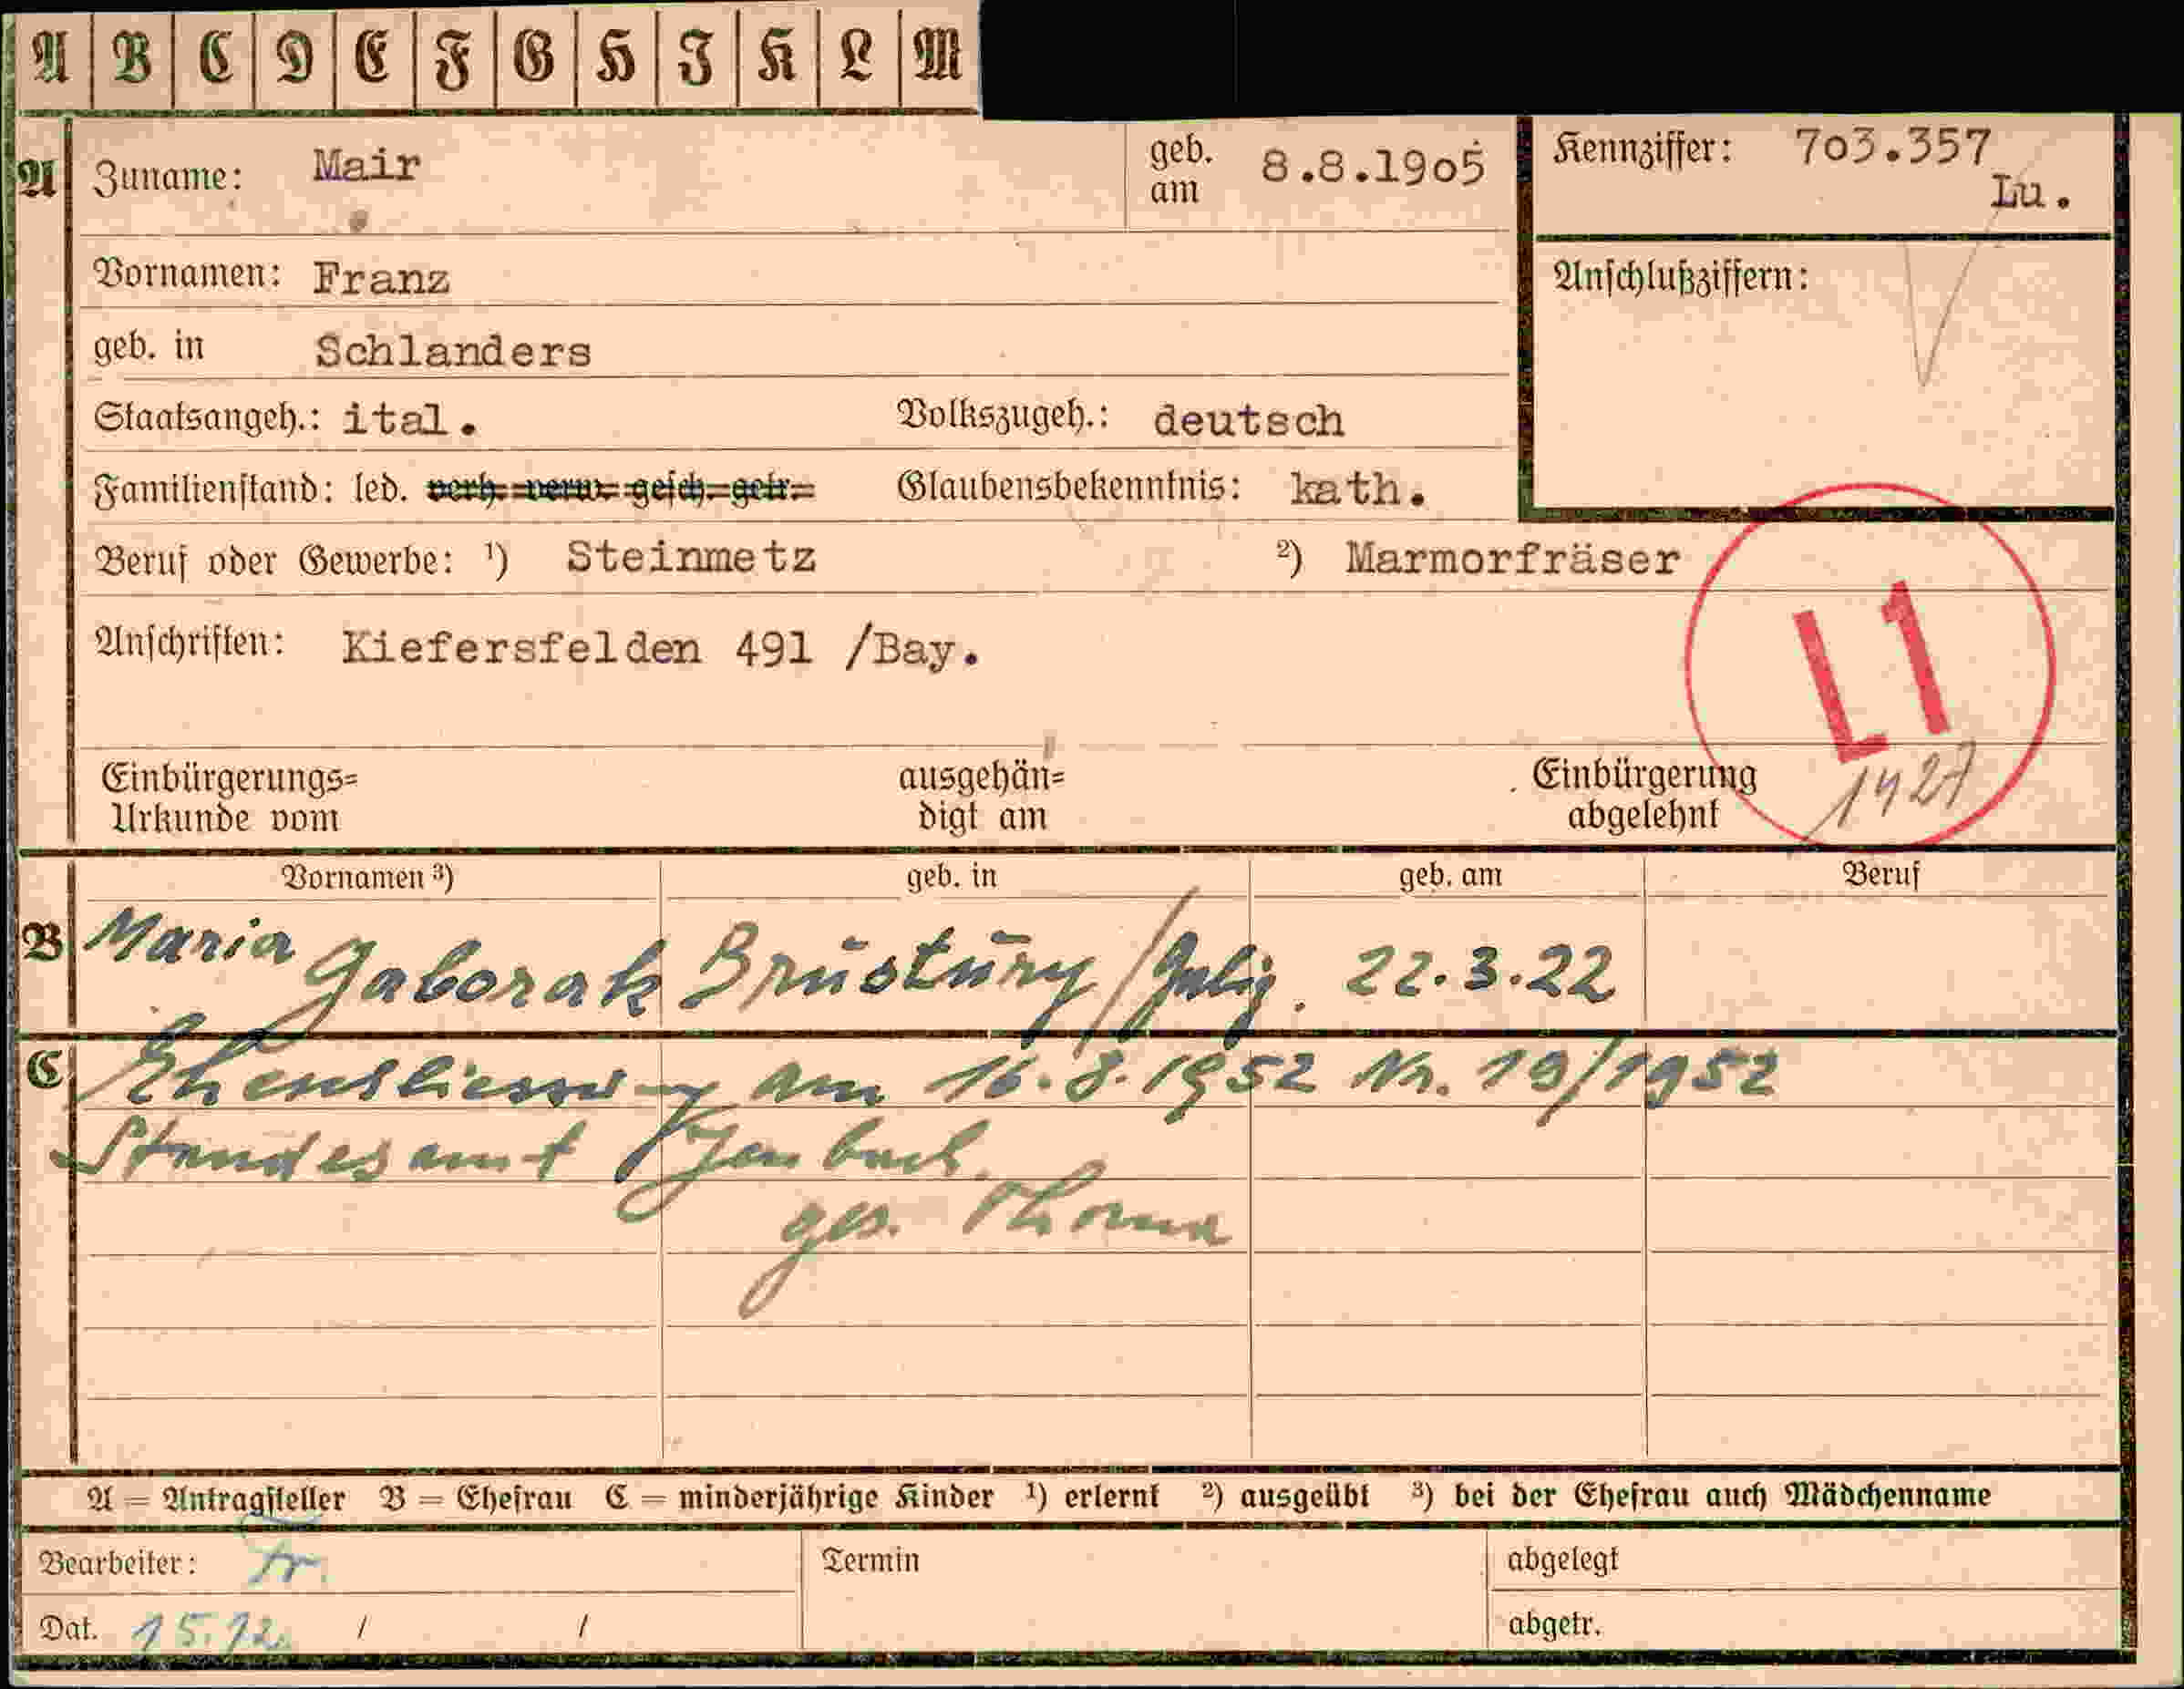 A B C D E F G H I K L M
A Zuname: Mair geb. am 8.8.19o5 Kennziffer: 7o3.357
Lu.
Vornamen: Franz Anschlußziffern:
geb. in Schlanders
Staatsangeh.: ital. Volkszugeh.: deutsch
Familienstand: led. verh. verw. gesch. getr. Glaubensbekenntnis: kath.
Beruf oder Gewerbe: ¹) Steinmetz ²) Marmorfräser
L1
Anschriften: Kiefersfelden 491 /Bay.
Einbürgerungs= ausgehän= Einbürgerung 1427
Urkunde vom digt am abgelehnt
Vornamen ³) geb. in geb. am Beruf
B Maria Gaborak Brustury / Galiz. 22.3.22
C Eheschliessung am 16.8.1952 Nr. 19/1952
Standesamt Jenbach.
gez. Thoma
A = Antragsteller B = Ehefrau C = minderjährige Kinder ¹) erlernt ²) ausgeübt ³) bei der Ehefrau auch Mädchenname
Bearbeiter: Tr. Termin abgelegt
Dat. 15.12. / / abgetr.